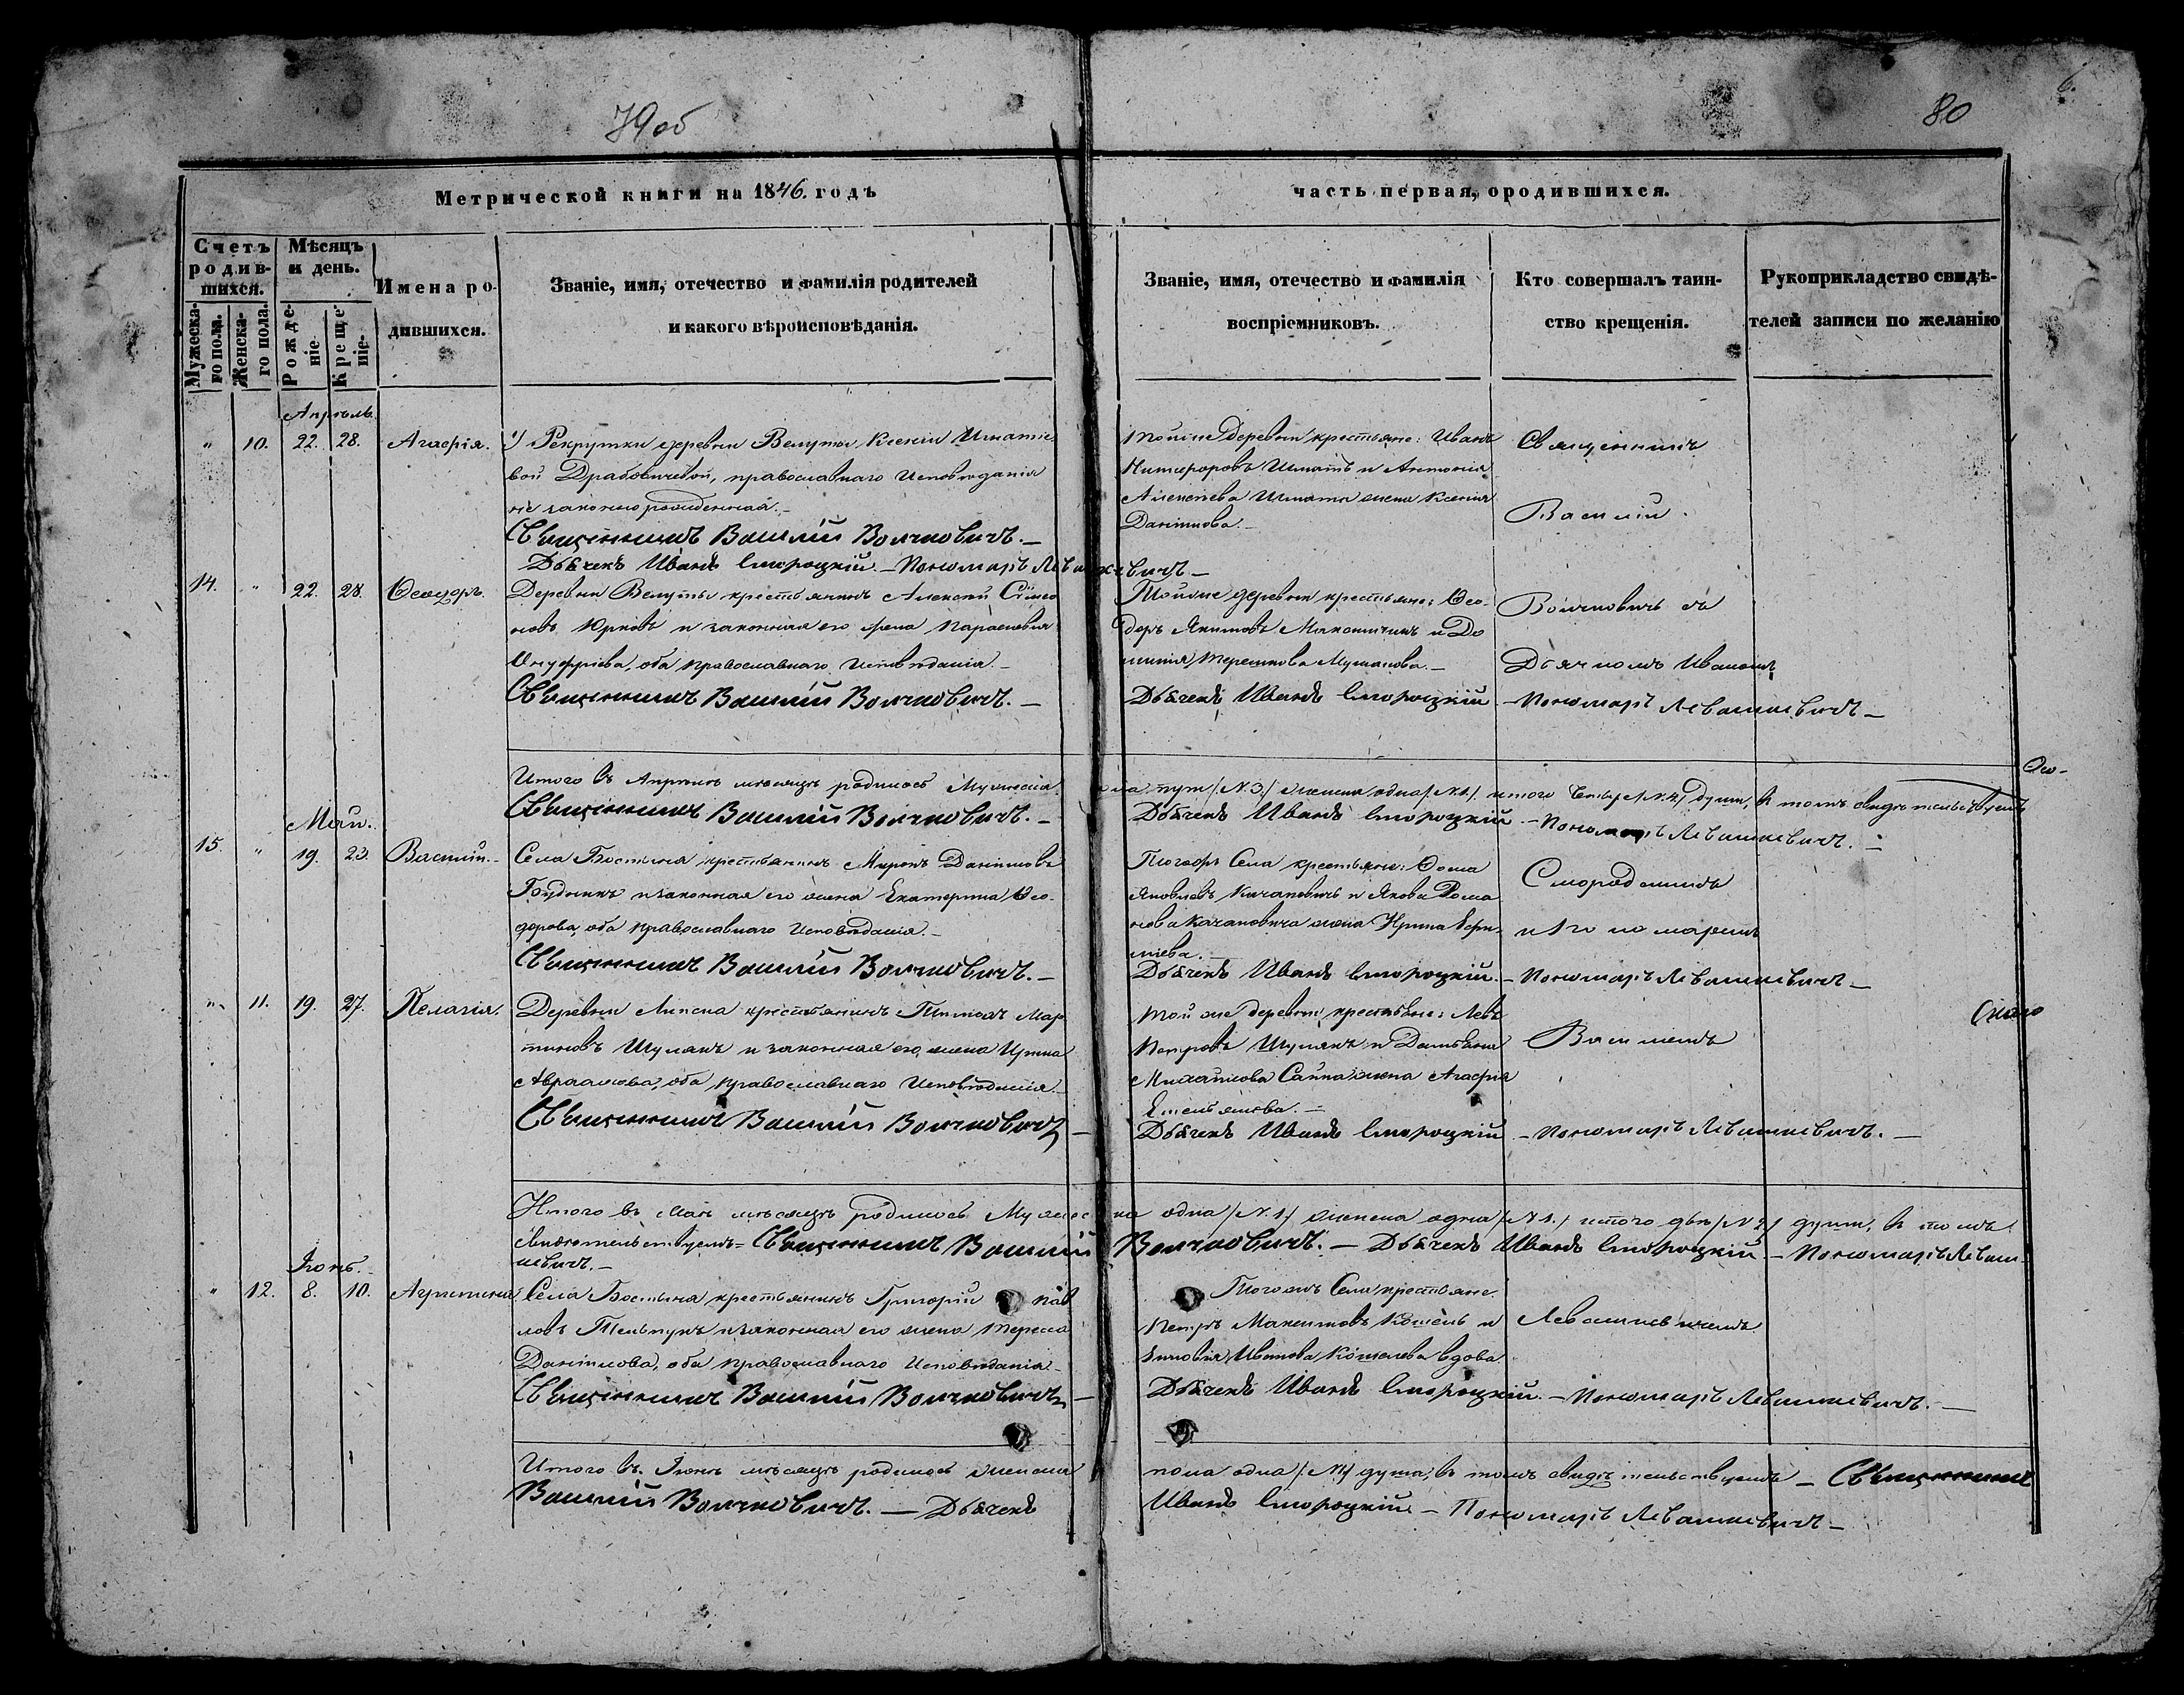 79об
80
6.
Метрической книги на 1846. годъ
часть первая, о родившихся.
Счетъ родив-шихся.
Мужеска-го пола.
Женска-го пола.
Мѣсяцъ и день.
Рожде-ніе.
Креще-ніе.
Имена ро-
дившихся.
Званіе, имя, отечество и фамилія родителей
и какого вѣроисповѣданія.
Званіе, имя, отечество и фамилія
воспріемниковъ.
Кто совершалъ таин-
ство крещенія.
Рукоприкладство свидѣ-
телей записи по желанію
Апрѣль.
" 10. 22. 28. Агафія.
Рекрутки деревни Велуты Ксеніи Игнатіе-
вой Драбовичевой, православнаго Исповѣданія
не законнорожденная.–
Священникъ Василій Волчковичъ.–
Дьячекъ Иванъ Сmороцкій.– Пономарь Левашкевичъ–
Тойже деревни крестьяне: Иванъ
Никифоровъ Шматъ и Антонія
Алексѣева Шмата жена Ксенія
Данілова.–
Священникъ
Василій
14. " 22. 28. Ѳеодоръ.
Деревни Велуты крестьянинъ Алексѣй Сімео
новъ Юрковъ и законная его жена Параскевія
Онуфріева, оба православнаго Исповѣданія.–
Священникъ Василій Волчковичъ.–
Тойже деревни крестьяне: Ѳео-
доръ Якимовъ Максимчикъ и До
Дьячекъ Иванъ Сmороцкій – Пономарь Левашкевичъ–
Волчковичъ съ
Дьячкомъ Иваномъ
Итого въ Апрѣлѣ мѣсяцѣ родилось Мужеска
пола три /№3./ женска одна /№1./ итого четыре /№4./ душъ, въ томъ свидѣтельствуемъ
Священникъ Василій Волчковичъ.–
Дьячекъ Иванъ Сmороцкій – Пономарь Левашкевичъ.–
Май.
15. " 19. 23. Василій.–
Села Бостыня крестьянинъ Миронъ Даніиловъ
Будникъ и законная его жена Екатерина Ѳео-
дорова, оба православнаго Исповѣданія.–
Священникъ Василій Волчковичъ.–
Тогожъ Села крестьяне: Ѳома
Яковлевъ Качановичъ и Якова Рома
нова Качановича жена Ирина Ефи
міева.–
Дьячекъ Иванъ Сmороцкій.– Пономарь Левашкевичъ–
Сmороцкимъ
и Пономаремъ
" 11. 19. 27. Пелагія.
Деревни Липска крестьянинъ Тимохъ Мар
тиновъ Шулякъ и законная его жена Ирина
Авраамова, оба православнаго Исповѣданія.–
Священникъ Василій Волчковичъ–
Той же деревни крестьяне: Левъ
Петровъ Шулякъ и
Михайлова жена Агафія
Емельянова.–
Дьячекъ Иванъ Сmороцкій – Пономарь Левашкевичъ.–
Василіемъ
Итого въ Маѣ мѣсяцѣ родилось Мужеска одна /№1./ женска одна /№1./ итого двѣ /№2/ душъ, въ томъ
свидѣтельствуемъ= Священникъ Василій Волчковичъ.– Дьячекъ Иванъ Сmороцкій – Пономарь Леваш-
кевичъ.–
Іюнь.
" 12. 8. 10. Агрипина.
Села Бостыня крестьянинъ Григорій Пав
ловъ Тельпукъ и законная его жена Тереса
Даніилова, оба православнаго Исповѣданія–
Священникъ Василій Волчковичъ–
Тогожъ Села крестьяне
Петръ Максимовъ Кошель и
Зиновія Иванова Кошелева вдова
Дьячекъ Иванъ Сmороцкій.– Пономарь Левашкевичъ.–
Левашкевичемъ
Итого въ Іюнѣ мѣсяцѣ родилось женска
пола одна /№1/ душа, въ томъ свидѣтельствуемъ – Священникъ
Василій Волчковичъ.– Дьячекъ
Иванъ Сmороцкій – Пономарь Левашкевичъ–